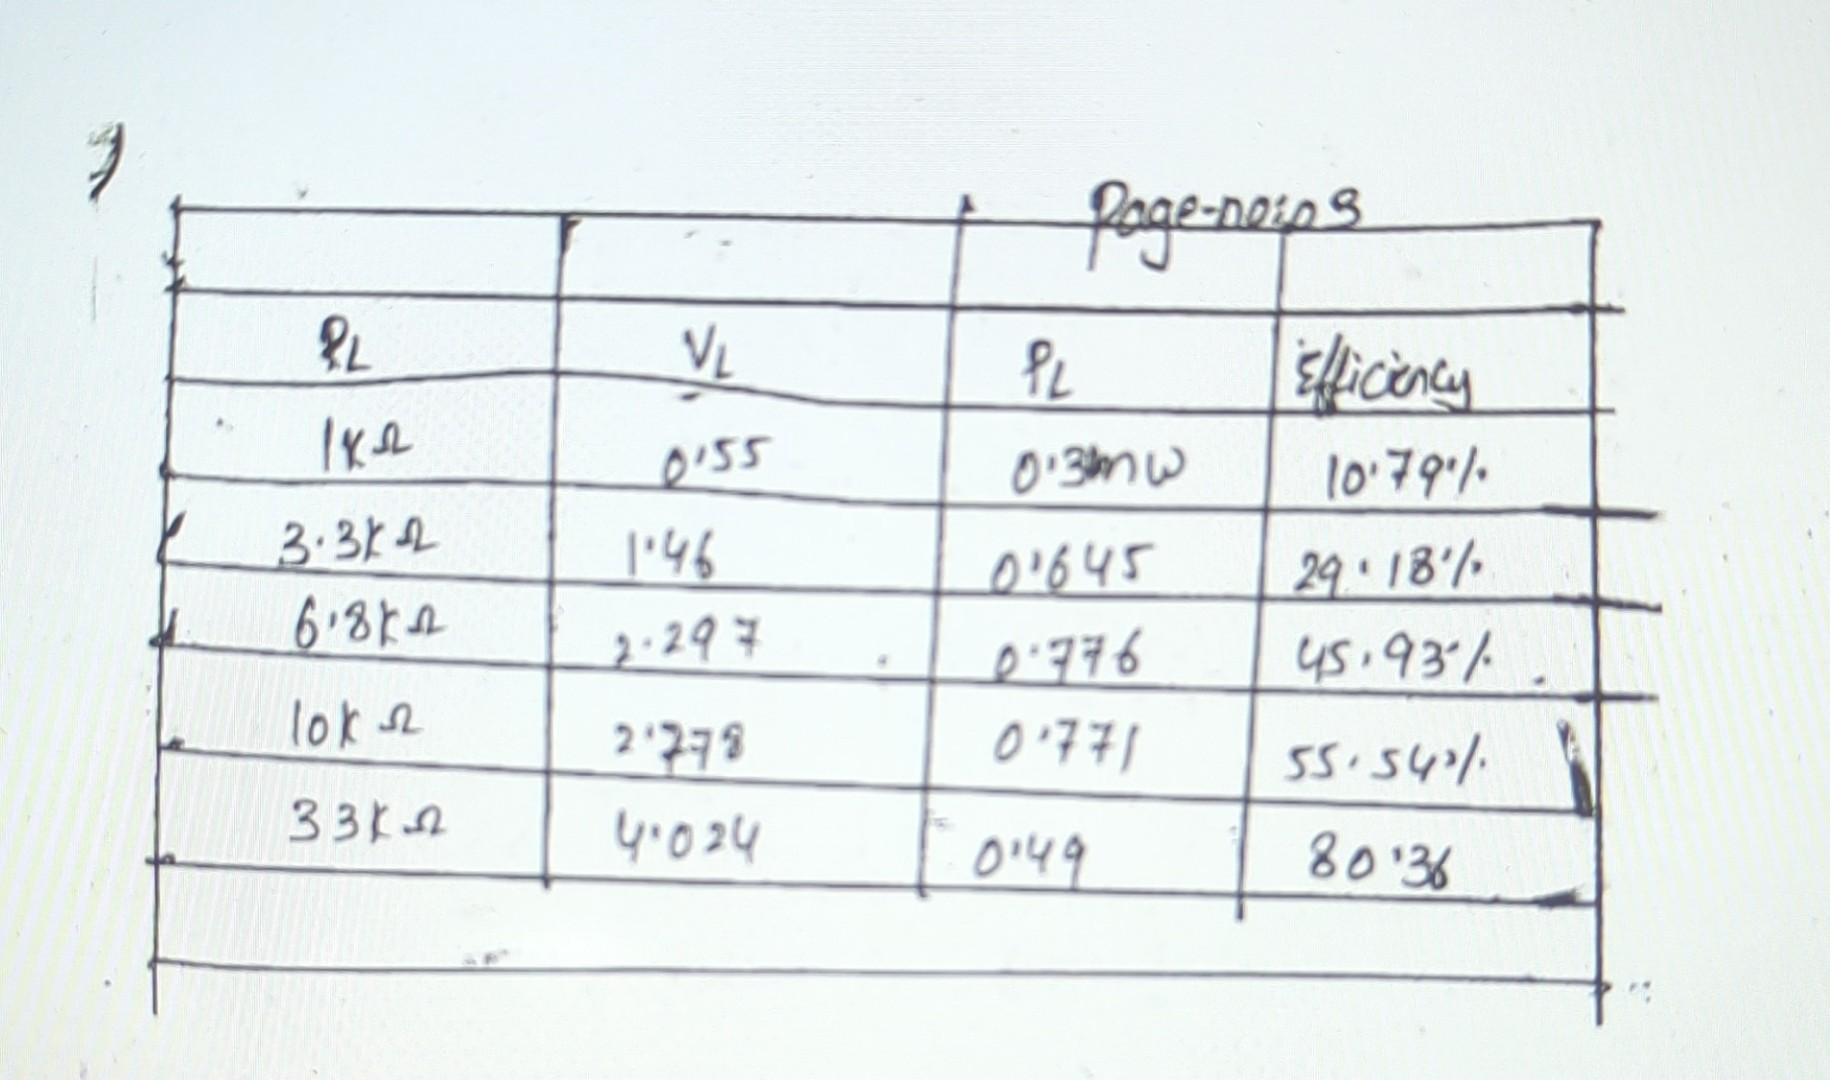 Page-no:03
RL VL PL Efficiency
1KΩ 0.55 0.3mW 10.79%
3.3KΩ 1.46 0.645 29.18%
6.8KΩ 2.297 0.776 45.93%
10KΩ 2.778 0.771 55.54%
33KΩ 4.024 0.49 80.36